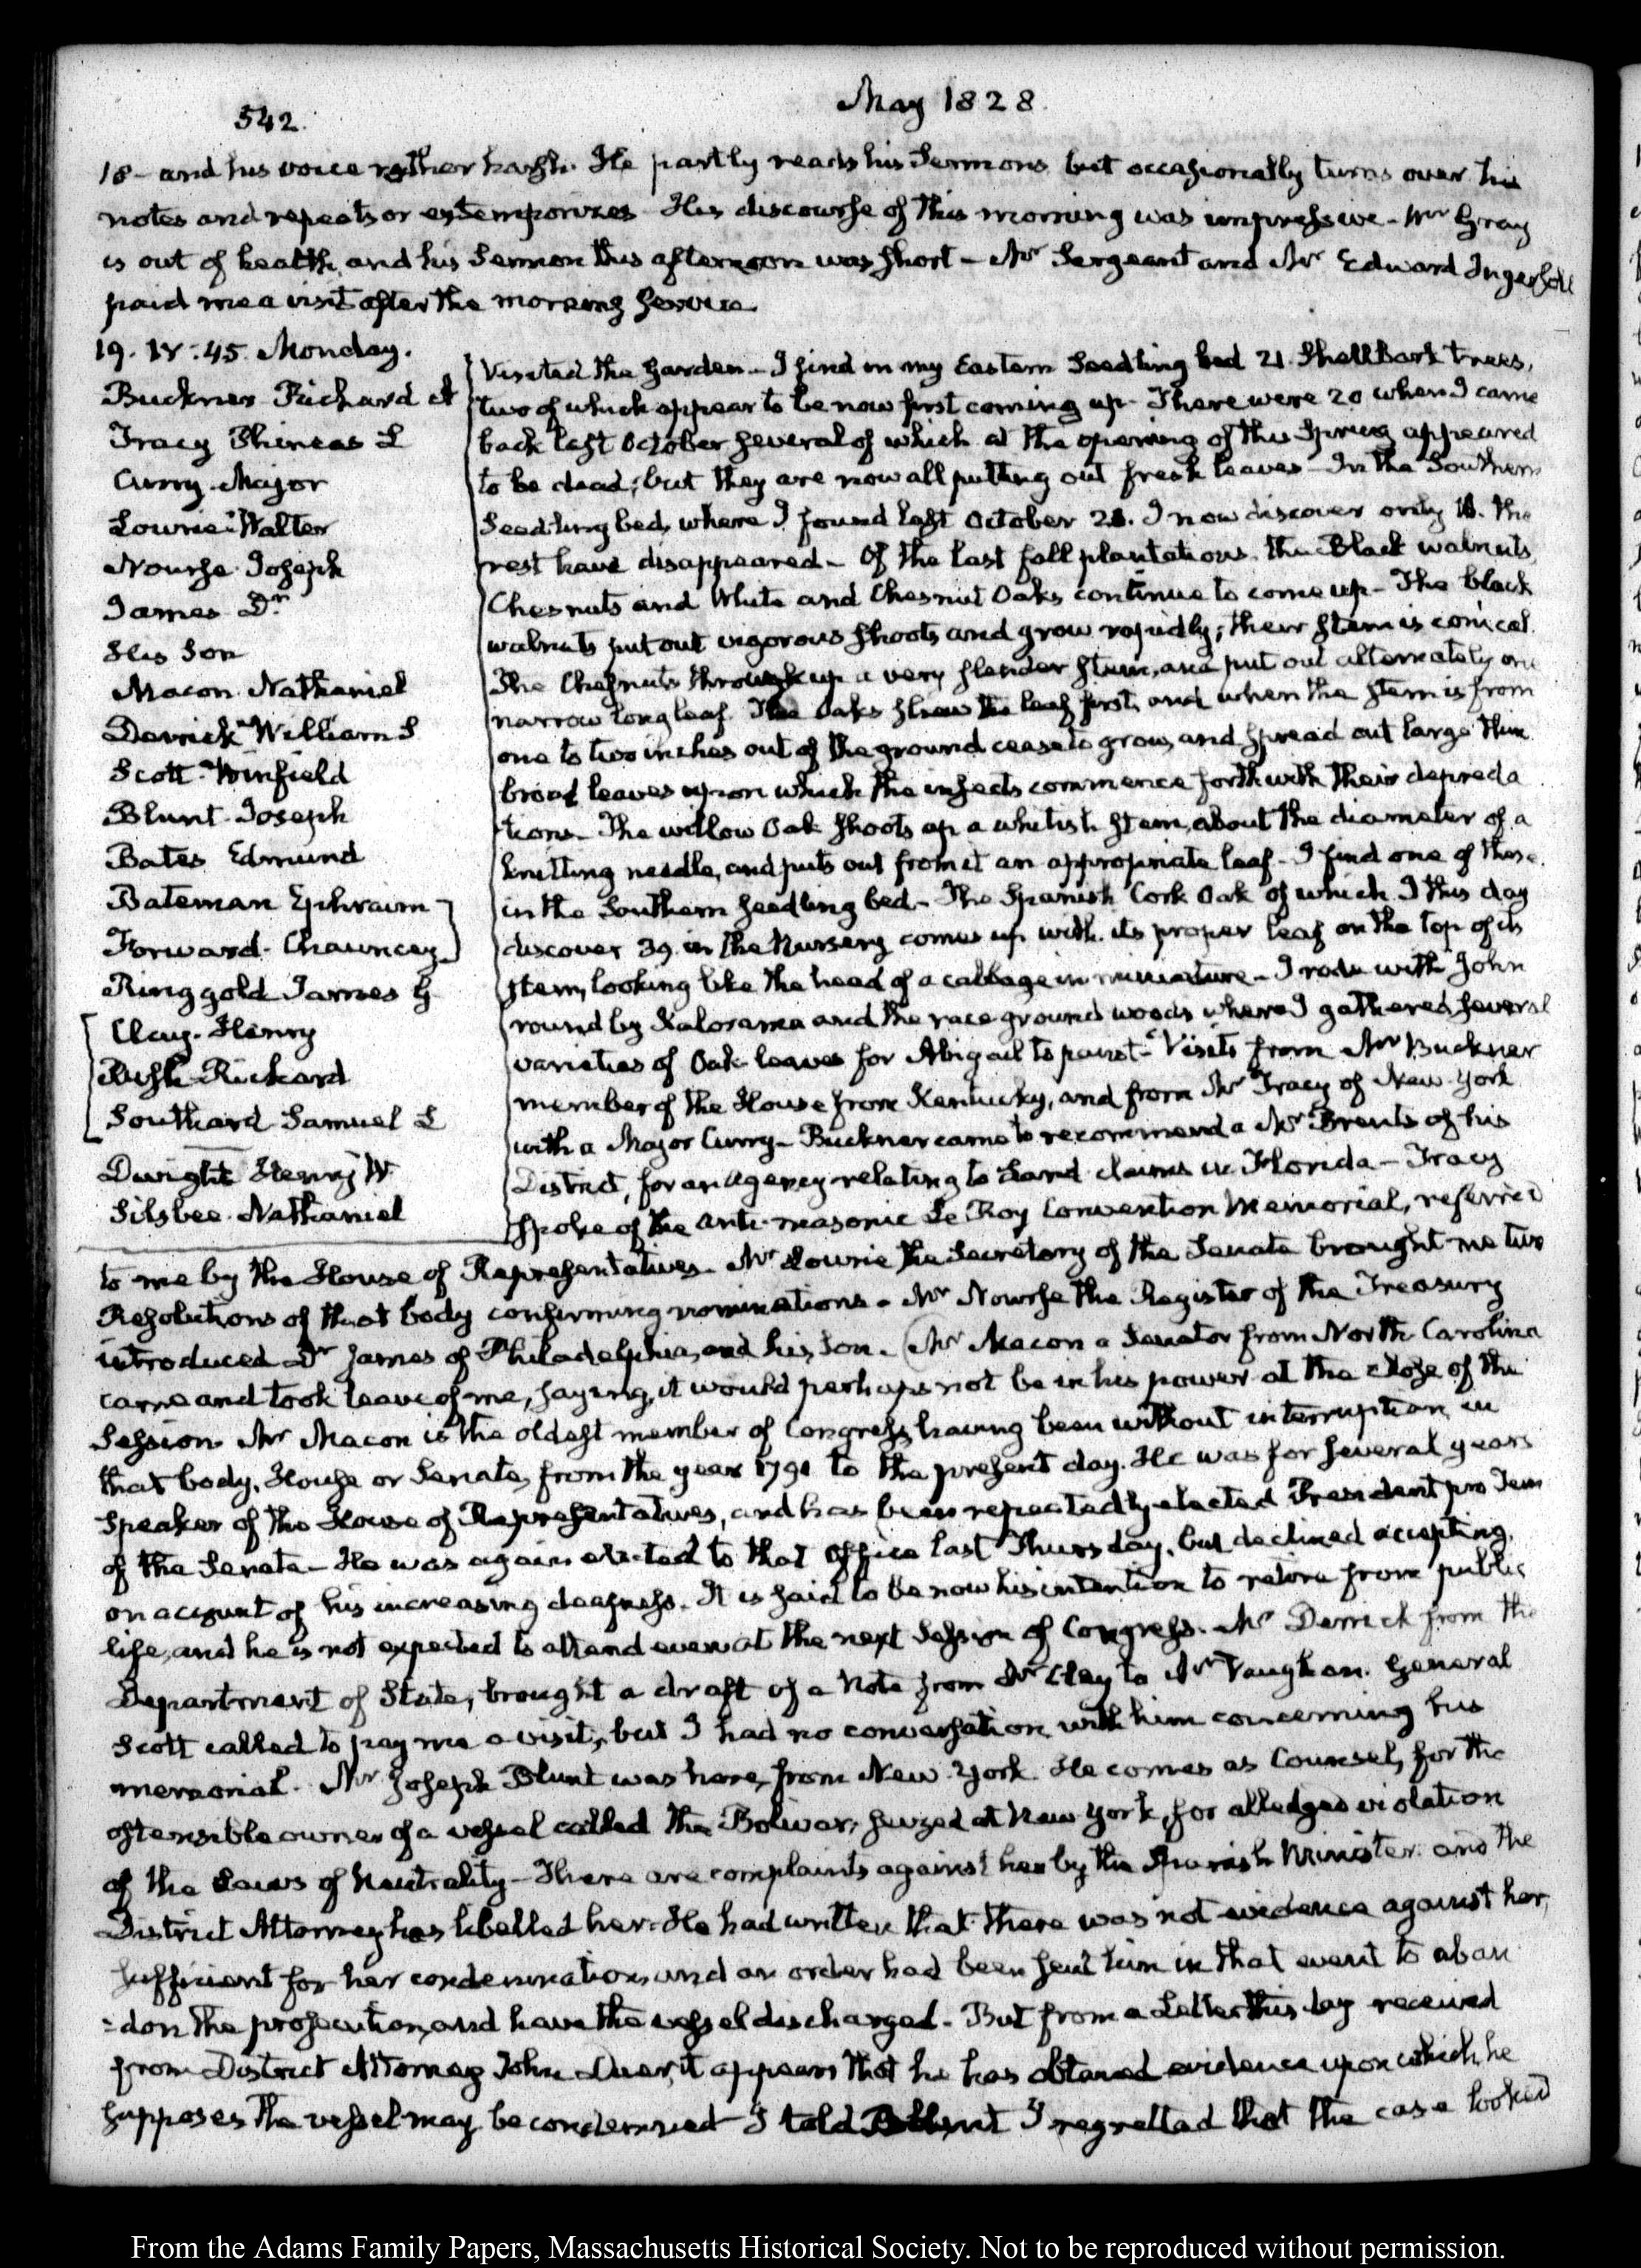 542.
May 1828.
18 - and his voice rather harsh. He partly reads his Sermons but occasionally turns over his
notes and repeats or extemporizes His discourse of this morning was impressive - Mr Gray
is out of health, and his Sermon this afternoon was short - Mr Sergeant and Mr Edward Ingersoll
paid me a visit after the morning service.
19. IV:45. Monday.
Buckner Richard A
Tracy Phineas L
Curry. Major
Lowrie Walter
Nourse Joseph
James Dr
His Son
Macon Nathaniel
Derrick William S
Scott Winfield
Blunt Joseph
Bates Edmund
Bateman Ephraim
Forward Chauncey
Ringgold James G
Clay. Henry
Rush Richard
Southard Samuel L
Dwight Henry W
Silsbee Nathaniel
Visited the Garden - I find in my Eastern Seedling bed 21 Shellbark trees,
two of which appear to be now first coming up - There were 20 when I came
back last October several of which at the opening of this Spring appeared
to be dead; but they are now all putting out fresh leaves - In the Southern
Seedling bed, where I found last October 28. I now discover only 18. The
rest have disappeared - Of the last fall plantations. the Black walnuts,
Chesnuts and White and Chesnut Oaks continue to come up - The black
walnuts put out vigorous shoots and grow rapidly; their stem is conical.
The Chesnuts throw up a very slender stem, and put out alternately one
narrow long leaf. The Oaks shew the leaf first, and when the stem is from
one to two inches out of the ground cease to grow, and spread out large thin
broad leaves upon which the insects commence forthwith their depreda
tions - The willow Oak shoots up a whitish stem, about the diameter of a
knitting needle, and puts out from it an appropriate leaf - I find one of these
in the Southern seedling bed - The Spanish Cork Oak of which I this day
discover 39 in the Nursery comes up with its proper leaf on the top of its
stem, looking like the head of a cabbage in miniature - I rode with John
round by Kalorama and the race ground woods where I gathered several
varieties of Oak leaves for Abigail to paint - Visits from Mr Buckner
member of the House from Kentucky, and from Mr Tracy of New York
with a Major Curry - Buckner came to recommend a Mr Brents of his
District, for an Agency relating to Land claims in Florida - Tracy
spoke of the anti-masonic Le Roy Convention Memorial, referred
to me by the House of Representatives. Mr Lowrie the Secretary of the Senate brought me two
Resolutions of that body confirming nominations. Mr Nourse the Register of the Treasury
introduced Dr James of Philadelphia, and his Son. Mr Macon a Senator from North Carolina
came and took leave of me, saying, it would perhaps not be in his power at the close of the
Session. Mr Macon is the oldest member of Congress, having been without interruption in
that body, House or Senate, from the year 1791 to the present day. He was for several years
Speaker of the House of Representatives, and has been repeatedly elected President pro Tem
of the Senate - He was again elected to that Office last Thursday, but declined accepting,
on account of his increasing deafness. It is said to be now his intention to retire from public
life, and he is not expected to attend even at the next Session of Congress. Mr Derrick from the
Department of State, brought a draft of a Note from Mr Clay to Mr Vaughan. General
Scott called to pay me a visit, but I had no conversation with him concerning his
memorial. Mr Joseph Blunt was here, from New York. He comes as Counsel, for the
ostensible owner of a vessel called the Bolivar, seized at New York, for alledged violation
of the Laws of Neutrality - There are complaints against her by the Spanish Minister and the
District Attorney has libelled her. He had written that there was not evidence against her,
sufficient for her condemnation, and an order had been sent him in that event to aban
=don the prosecution, and have the vessel discharged - But from a Letter this day received
from District Attorney John Duer, it appears that he has obtained evidence upon which, he
supposes the vessel may be condemned I told Blunt I regretted that the case looked
From the Adams Family Papers, Massachusetts Historical Society. Not to be reproduced without permission.